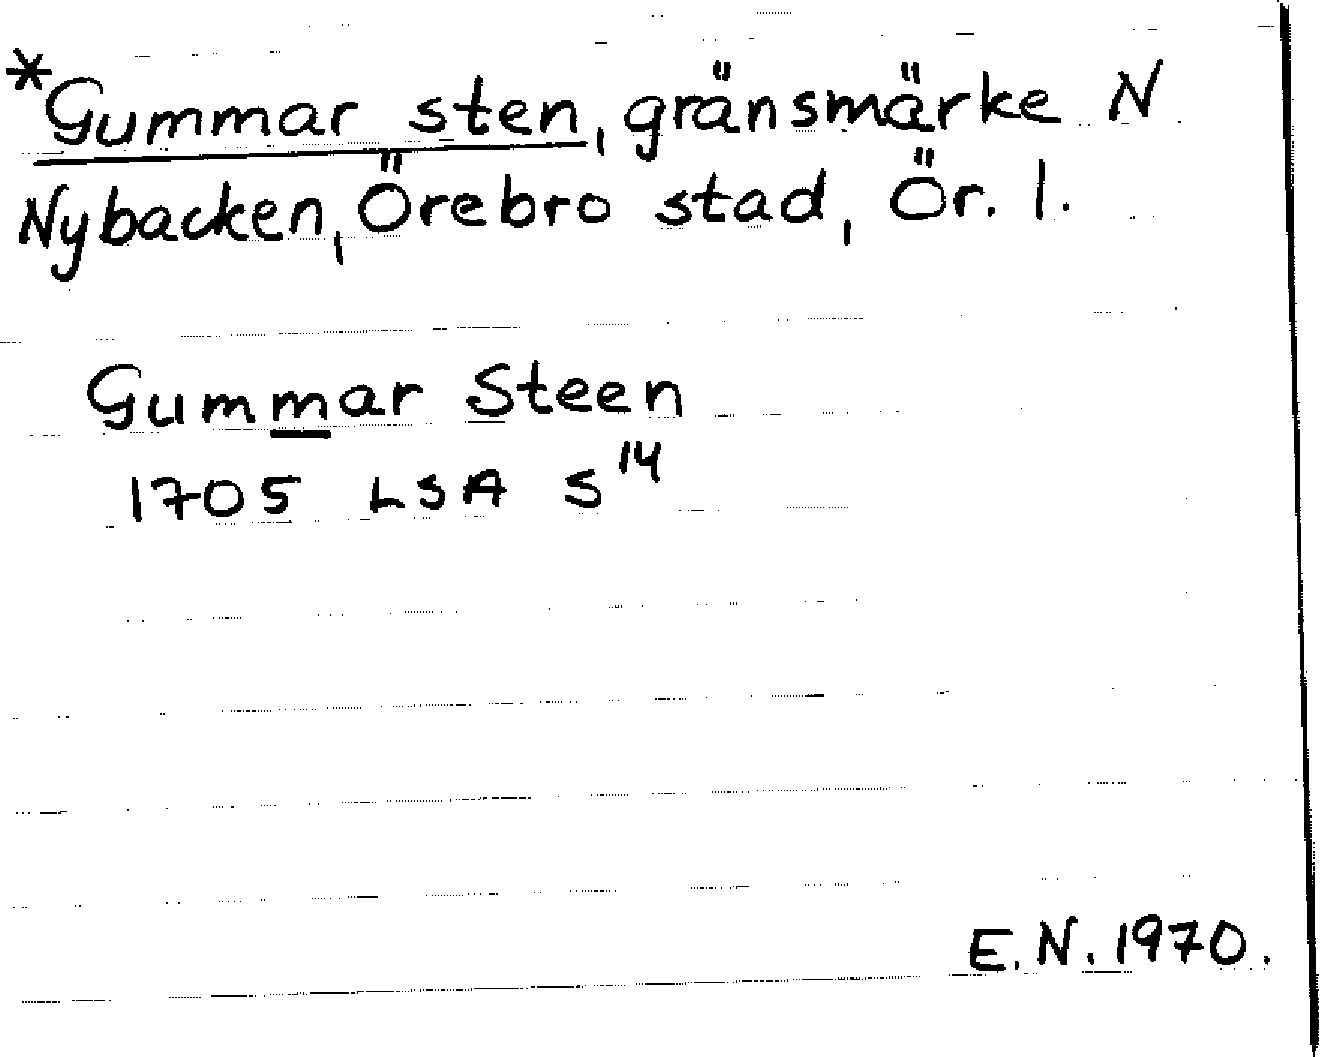 *Gummar sten, gränsmärke N
Nybacken, Örebro stad, Ör. l.
Gummar Steen
1705 LSA S¹⁴
E.N. 1970.